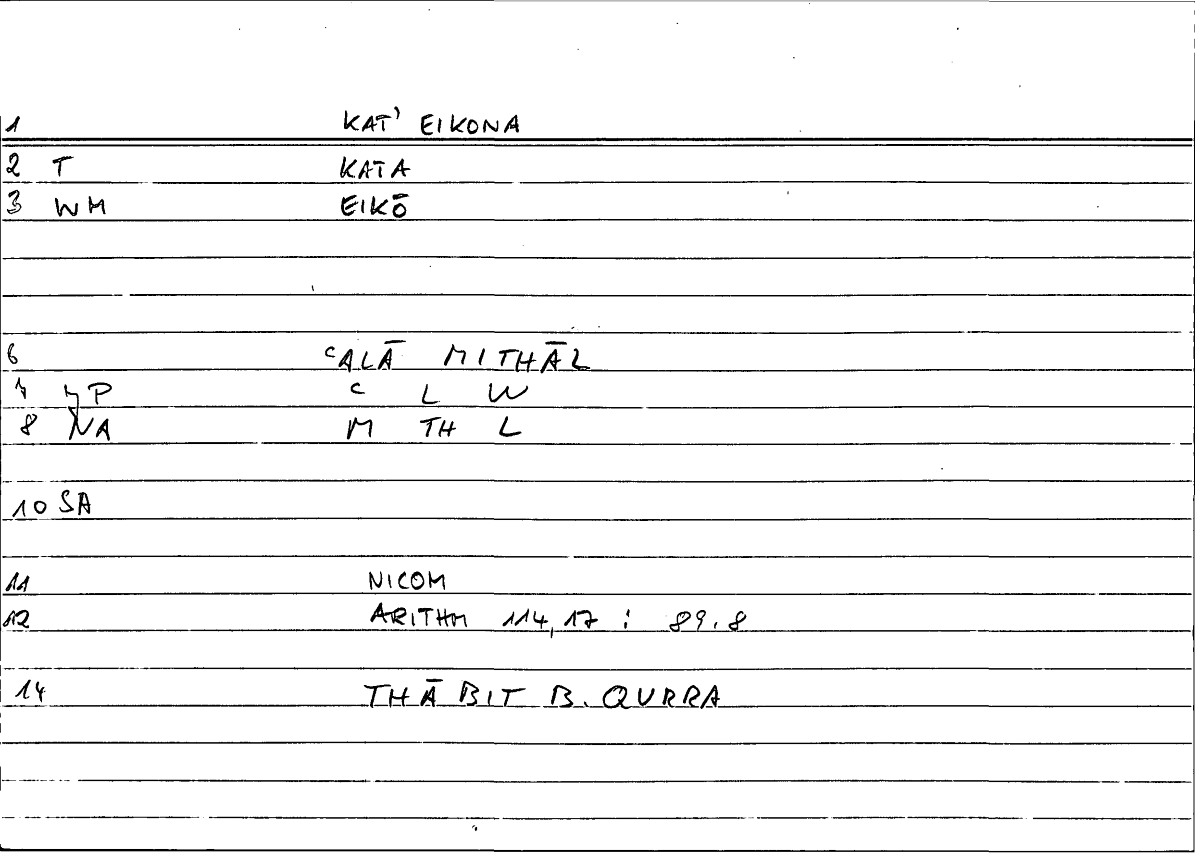 1 KAT' EIKONA
2 T KATA
3 WM EIKŌ
6 ᶜALĀ MITHĀL
7 4P C L W
8 NA M TH L
10 SA
11 NICOM
12 ARITHM 114,17 : 89.8
14 THĀBIT B. QURRA